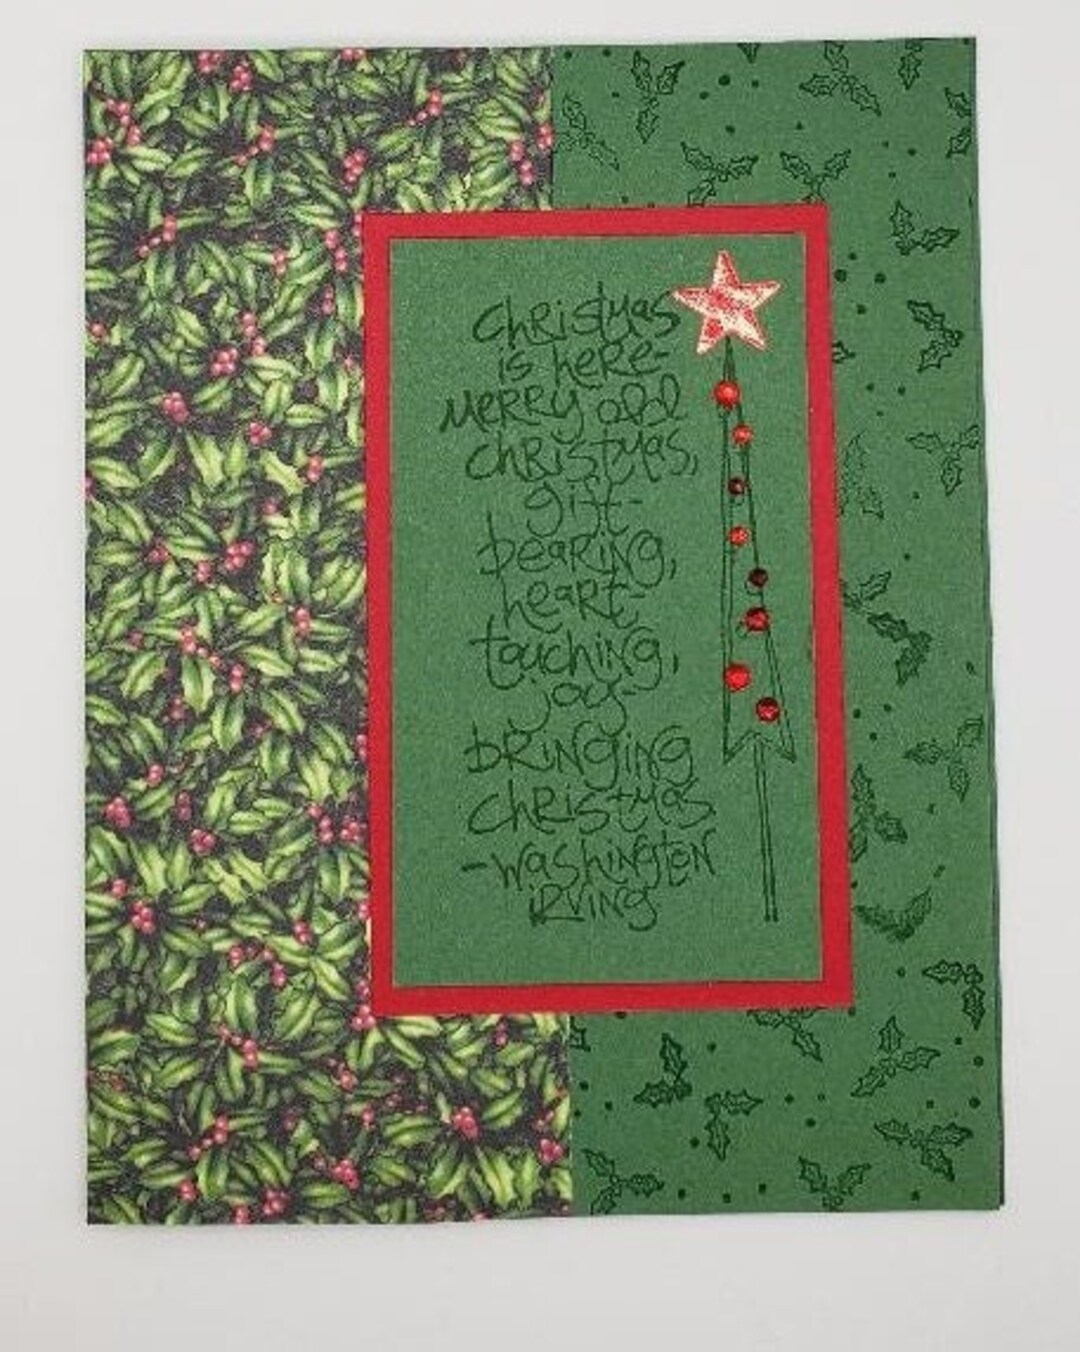 Christmas
is here-
MERRY old
christmas,
gift-
bearing,
heart-
touching,
joy-
bringing
christmas
-washington
irving